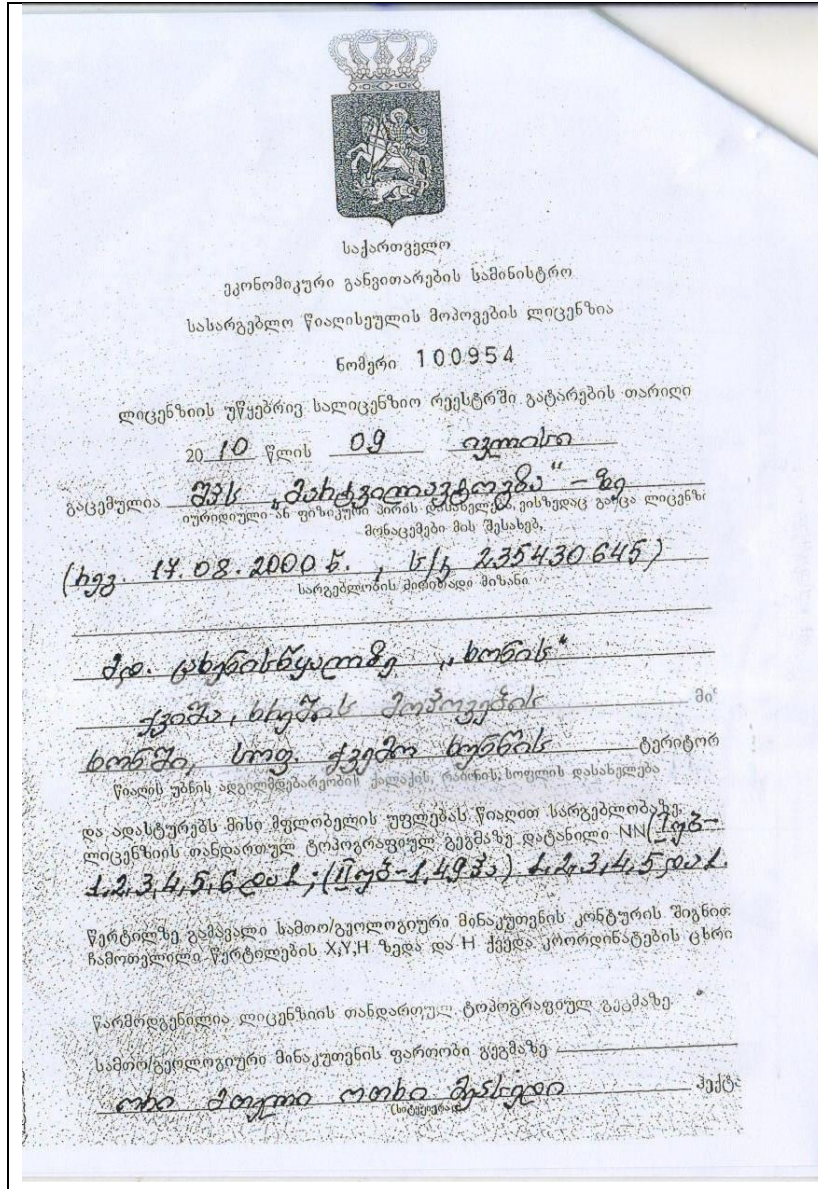 საქართველო
ეკონომიკური განვითარების სამინისტრო
სასარგებლო წიაღისეულის მოპოვების ლიცენზია
ნომერი 100954
ლიცენზიის უწყებრივ სალიცენზიო რეესტრში გატარების თარიღი
20 10 წლის 09 ივლისი
გაცემულია შპს „მარტვილავტოგზა“-ზე
იურიდიული ან ფიზიკური პირის დასახელება, ვისზედაც გაიცა ლიცენზი
მონაცემები მის შესახებ,
(რეგ. 17.08.2000 წ. , ს/ნ 235430645)
სარგებლობის ძირითადი მიზანი
მდ. ცხენისწყალზე „ხონის“
ქვიშა, ხრეშის მოპოვების მი
ხონში, სოფ. ქვემო ხუნწის ტერიტორ
წიაღის უბნის ადგილმდებარეობის ქალაქის, რაიონის, სოფლის დასახელება
და ადასტურებს მისი მფლობელის უფლებას წიაღით სარგებლობაზე.
ლიცენზიის თანდართულ ტოპოგრაფიულ გეგმაზე დატანილი NN (I უბ-
1,2,3,4,5,6 და 1; (II უბ-1,49 ჰა) 1,2,3,4,5 და 1.
წერტილზე გამავალი სამთო/გეოლოგიური მინაკუთვნის კონტურის შიგნით
ჩამოთვლილი წერტილების X,Y,H ზედა და H ქვედა კოორდინატების ცხრი
წარმოდგენილია ლიცენზიის თანდართულ ტოპოგრაფიულ გეგმაზე.
სამთო/გეოლოგიური მინაკუთვნის ფართობი გეგმაზე
ორი მთელი ოთხი მეასედი ჰექტა
(სიტყვიერად)